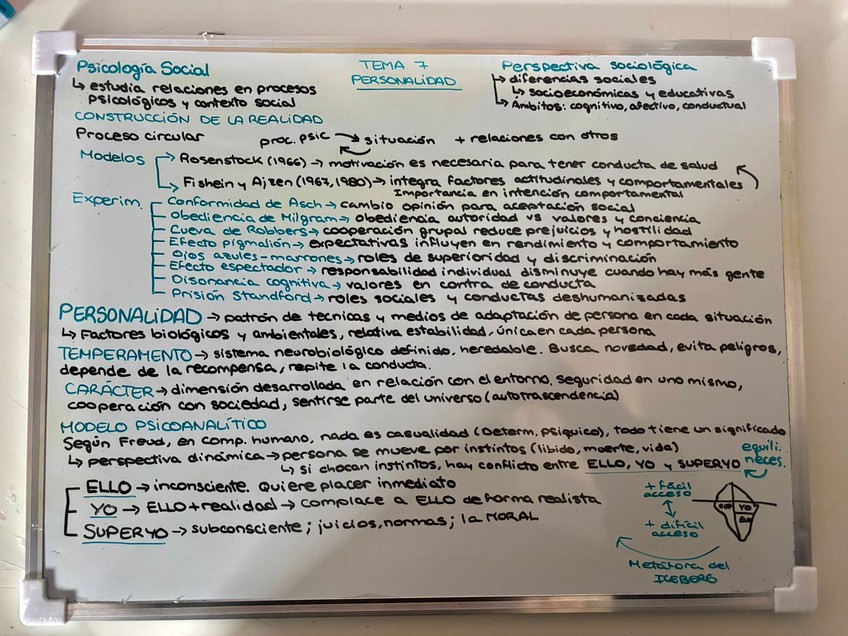 Psicología Social
↳ estudia relaciones en procesos
psicológicos y contexto social
TEMA 7
PERSONALIDAD
Perspectiva sociológica
↳ diferencias sociales
↳ socioeconómicas y educativas
↳ Ámbitos: cognitivo, afectivo, conductual
CONSTRUCCIÓN DE LA REALIDAD
Proceso circular proc. psic → situación + relaciones con otros
Modelos → Rosenstock (1966) → motivación es necesaria para tener conducta de salud
→ Fishein y Ajzen (1967, 1980) → integra factores actitudinales y comportamentales
Importancia en intención comportamental
Experim. Conformidad de Asch → cambio opinión para aceptación social
Obediencia de Milgram → obediencia autoridad vs valores y conciencia
Cueva de Robbers → cooperación grupal reduce prejuicios y hostilidad
Efecto pigmalión → expectativas influyen en rendimiento y comportamiento
Ojos azules-marrones → roles de superioridad y discriminación
Efecto espectador → responsabilidad individual disminuye cuando hay más gente
Disonancia cognitiva → valores en contra de conducta
Prisión Standford → roles sociales y conductas deshumanizadas
PERSONALIDAD → patrón de técnicas y medios de adaptación de persona en cada situación
↳ Factores biológicos y ambientales, relativa estabilidad, única en cada persona
TEMPERAMENTO → sistema neurobiológico definido, heredable. Busca novedad, evita peligros,
depende de la recompensa, repite la conducta.
CARÁCTER → dimensión desarrollada en relación con el entorno. Seguridad en uno mismo,
cooperación con sociedad, sentirse parte del universo (autotrascendencia)
MODELO PSICOANALÍTICO
Según Freud, en comp. humano, nada es casualidad (Determ. psíquico), todo tiene un significado
↳ perspectiva dinámica → persona se mueve por instintos (libido, muerte, vida)
↳ si chocan instintos, hay conflicto entre ELLO, YO y SUPERYO
equili.
neces.
ELLO → inconsciente. Quiere placer inmediato
YO → ELLO + realidad → complace a ELLO de forma realista
SUPERYO → subconsciente; juicios, normas; la MORAL
+ fácil
acceso
+ difícil
acceso
YO
Metáfora del
ICEBERG